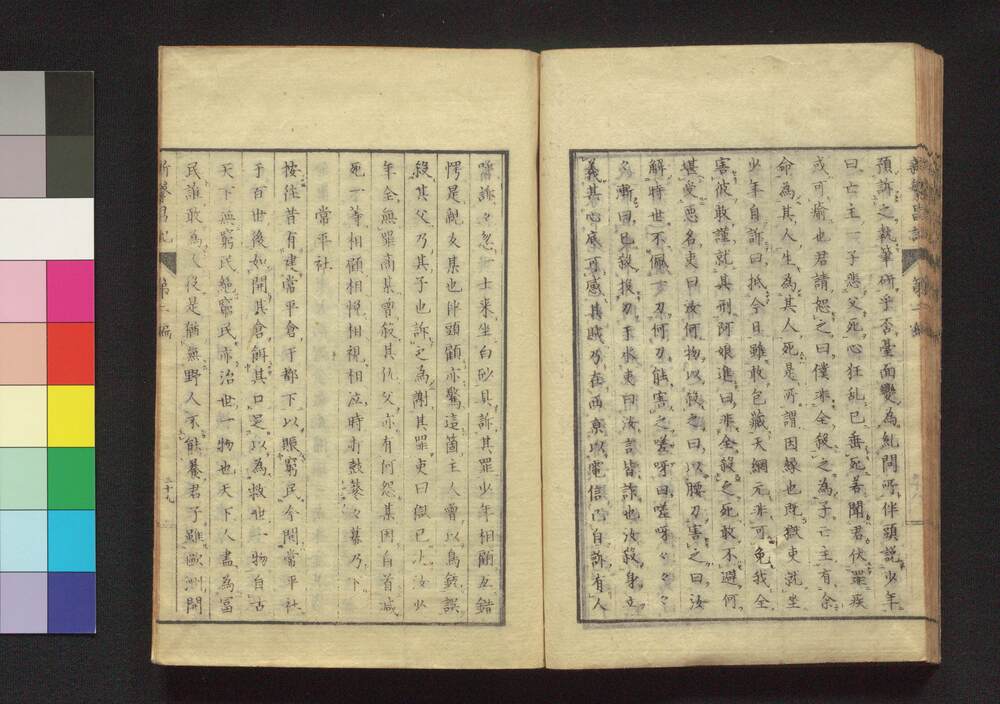 預訴之執筆研乎否臺面變為糺問所伴頭説少年
曰亡主一子悲父死心狂乱已垂死若聞君伏罪疾
或可癒也君請恕之曰僕非全殺之為子亡主有余
命為其人生為其人死是所謂因縁也既獄吏就坐
少年自訴曰抵今日雖敢包藏天網元非可免我全
害彼敢謹就其刑阿娘進曰非全殺之死敢不避何
堪受悪名吏曰汝何物以殺之曰以腰刀害之曰汝
解時世不佩刀何刀能害之嗟呀曰嗟呀々々々
漸曰已殺投刀于水吏曰汝言皆詐也汝殺身立
義其心底可感其賊乃在西京以電信已自訴有人
訴々忽一士来坐白砂具訴其罪少年相顧互錯
愕是親友某也伴頭顧亦驚這箇主人曾以鳥銃誤
殺其父乃其子也訴之為謝其罪吏曰獄已決汝少
年全無罪而某曾殺其仇父亦有何怨某因自首減
死一等相顧相悦相視相泣時打鼓鼕々幕乃下
常平社
按往昔有建常平倉于都下以賑窮民今聞常平社
于百世後如開其倉餌其口足以為救世一物自古
天下無窮民絶窮民亦治世一物也天下人盡為冨
民誰敢為役是猶無野人不能養君子雖歐洲開
新繁昌記 第二編 二十九